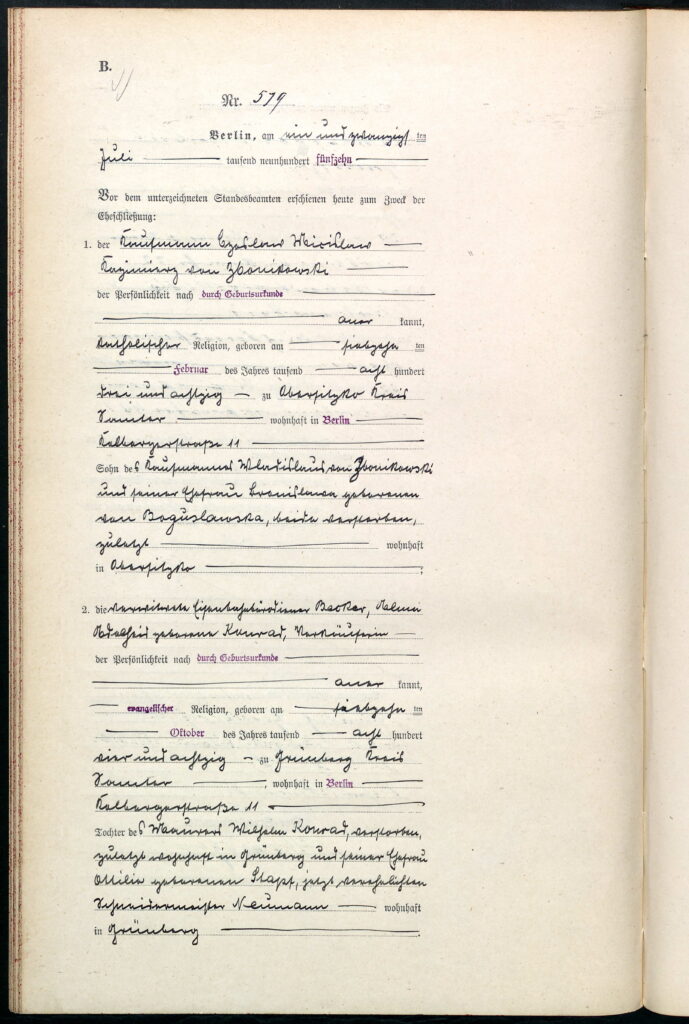 B.
Nr. 579
Berlin, am ein und zwanzigst ten
Juli tausend neunhundert fünfzehn
Vor dem unterzeichneten Standesbeamten erschienen heute zum Zweck der
Eheschließung:
1. der Kaufmann Czeslaw Micislaw
Kazimierz von Zbonikowski
der Persönlichkeit nach durch Geburtsurkunde
aner kannt,
katholischer Religion, geboren am siebzehn ten
Februar des Jahres tausend acht hundert
drei und achtzig zu Obersitzko Kreis
Samter wohnhaft in Berlin
Kolbergerstraße 11
Sohn des Kaufmannes Wladislaus von Zbonikowski
und seiner Ehefrau Bronislawa geborenen
von Boguslawska, beide verstorben,
zuletzt wohnhaft
in Obersitzko ;
2. die verwitwete Eisenbahnbürodiener Becker, Alma
Adelheid geborene Konrad, Verkäuferin
der Persönlichkeit nach durch Geburtsurkunde
aner kannt,
evangelischer Religion, geboren am siebzehn ten
Oktober des Jahres tausend acht hundert
vier und achtzig zu Grünberg Kreis
Samter , wohnhaft in Berlin
Kolbergerstraße 11
Tochter des Maurers Wilhelm Konrad, verstorben,
zuletzt wohnhaft in Grünberg und seiner Ehefrau
Ottilie geborenen Stapf, jetzt verehelichten
Schneidermeister Neumann wohnhaft
in Grünberg .